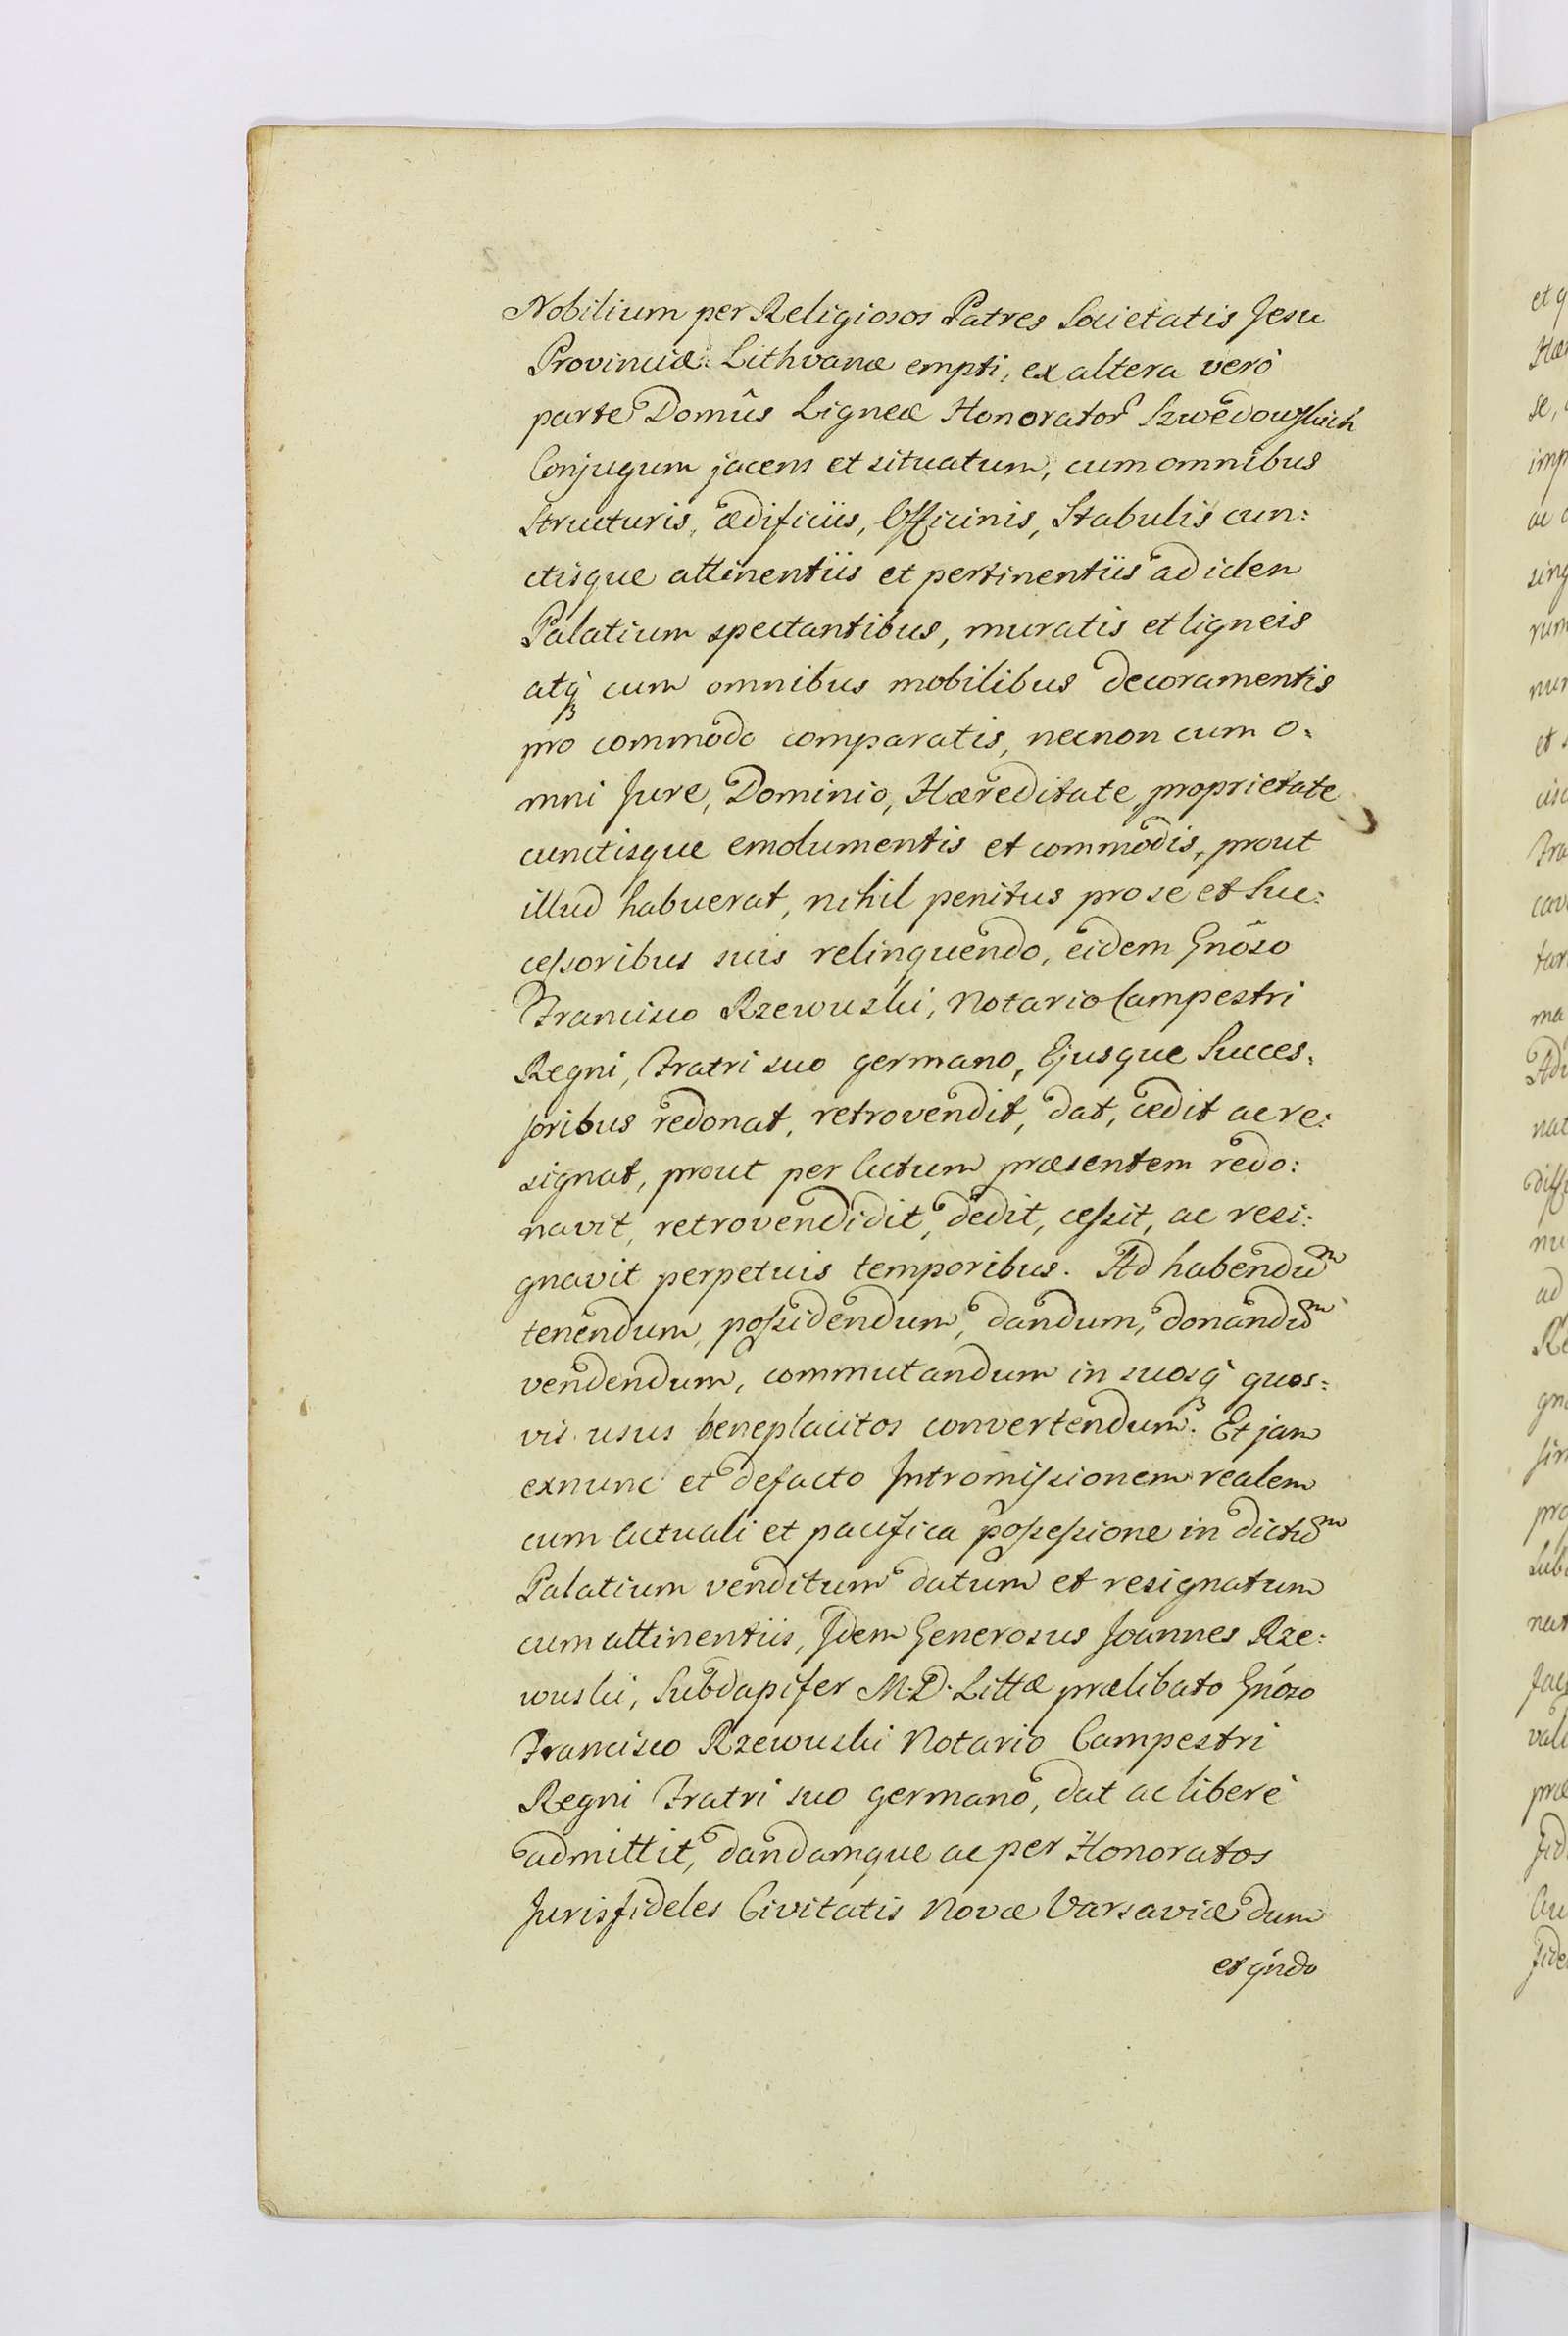 Nobilium per Religiosos Patres Societatis Jesu
Provinciæ Lithvanæ empti, ex altera verò
parte Domûs Ligneæ Honorator Szwedowskich
Conjugum jacens et situatum, cum omnibus
Structuris, ædificiis, Officinis, Stabulis cun:
ctisque attinentiis et pertinentiis ad idem
Palatium spectantibus, muratis et ligneis
atq3 cum omnibus mobilibus decoramentis
pro commodo comparatis, necnon cum o:
mni Jure, Dominio, Hæreditate, proprietate
cunctisque emolumentis et commodis, prout
illud habuerat, nihil penitus pro se et Suc:
cessoribus suis relinquendo, eidem Gnõso
Francisco Rzewuski, Notario Campestri
Regni, Fratri suo germano, Ejusque Succes:
soribus redonat, retrovendit, dat, cedit ac re:
signat, prout per Actum præsentem redo:
navit, retrovendidit, dedit, cessit, ac resi:
gnavit perpetuis temporibus. Ad habendum
tenendum, possidendum, dandum, donandum
vendendum, commutandum in suosq3 quos:
vis usus beneplacitos convertendum. Et jam
exnunc et defacto Intromissionem realem
cum Actuali et pacifica possessione in dictum
Palatium venditum datum et resignatum
cum attinentiis, Idem Generosus Joannes Rze:
wuski, Subdapifer M. D. Littæ prælibato Gnõso
Francisco Rzewuski Notario Campestri
Regni Fratri suo germano, dat ac liberè
admittit, dandamque ac per Honoratos
Jurisfideles Civitatis Novæ Varsaviæ dum
et qndo
et q
se,
imp
sing
et
ma
nat
ad
gna
pro